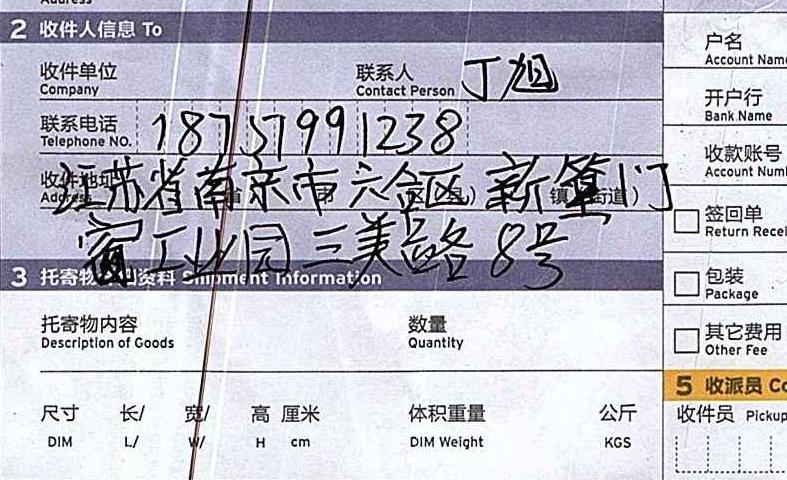 Address
2 收件人信息 To
收件单位
Company
联系人
Contact Person
丁旭
联系电话
Telephone NO.
18757991238
收件地址
Address
江苏省南京市六合区新篁门
窗工业园三美路8号
省 市 区(县) 镇(街道)
3 托寄物 资料 Shipment Information
托寄物内容
Description of Goods
数量
Quantity
尺寸 长/ 宽/ 高 厘米
DIM L/ W/ H cm
体积重量 公斤
DIM Weight KGS
户名
Account Name
开户行
Bank Name
收款账号
Account Num
签回单
Return Recei
包装
Package
其它费用
Other Fee
5 收派员 Co
收件员 Pickup